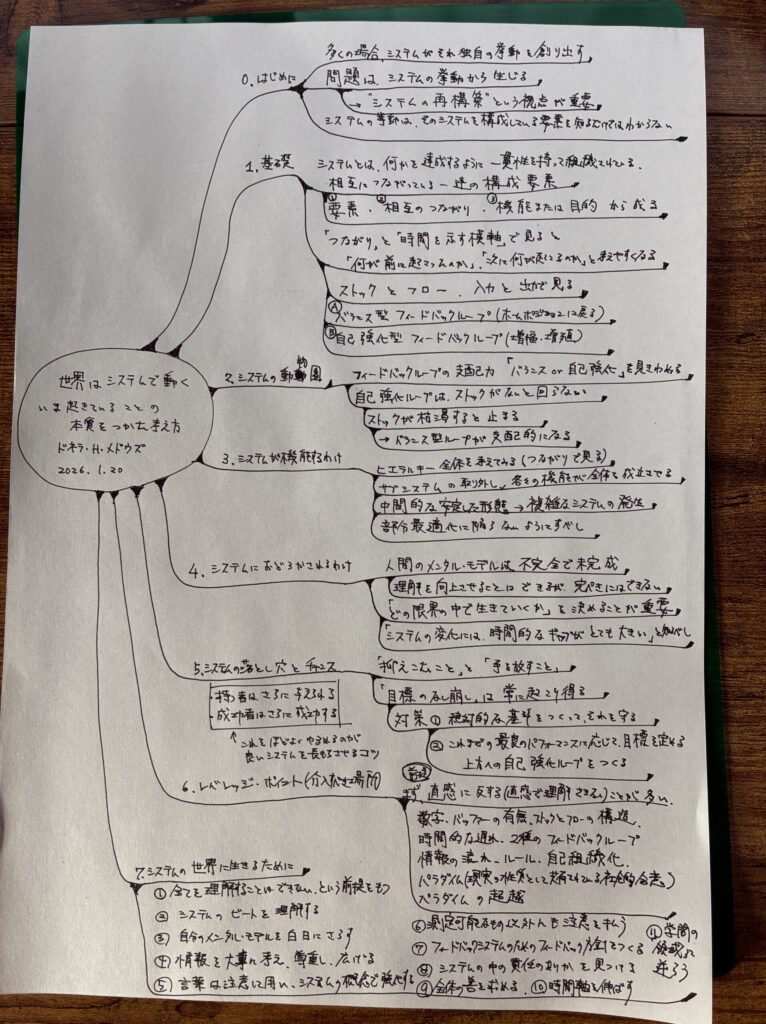 世界はシステムで動く
いま起きていることの
本質をつかむ考え方
ドネラ・H・メドウズ
2026.1.20
0.はじめに
多くの場合、システムがそれ独自の挙動を創り出す
問題は、システムの挙動から生じる
→"システムの再構築"という視点が重要
システムの挙動は、そのシステムを構成している要素を知るだけではわからない
1.基礎
システムとは、何かを達成するように一貫性を持って組織されている、
相互につながっている一連の構成要素
①要素、②相互のつながり、③機能または目的 から成る
「つながり」と「時間を示す横軸」で見ると
「何が前に起こったのか」、「次に何が起こるのか」と考えやすくなる
ストックとフロー、入力と出力で見る
Ⓐバランス型フィードバックループ(ホームポジションに戻る)
Ⓑ自己強化型フィードバックループ(増幅・増殖)
2.システムの動物園
フィードバックループの支配力「バランス or 自己強化」を見きわめる
自己強化ループは、ストックがないと回らない
ストックが枯渇すると止まる
→バランス型ループが支配的になる
3.システムが機能するわけ
ヒエラルキー全体を考えてみる(つながりで見る)
サブシステムの取り外し、各々の機能が全体を成立させる
中間的な安定した形態→複雑なシステムの発生
部分最適化に陥らないようにすべし
4.システムにおどろかされるわけ
人間のメンタル・モデルは不完全で未完成
理解を向上させることはできるが、完ぺきにはできない
「どの限界の中で生きていくか」を決めることが重要
「システムの変化には、時間的なギャップがとても大きい」と知るべし
5.システムの落とし穴とチャンス
・持つ者はさらに与えられる
・成功者はさらに成功する
↑これをほどよくゆるめるのが
良いシステムを長もちさせるコツ
「抑えこむこと」と「手を放すこと」
「目標のなし崩し」は常に起こり得る
対策①絶対的な基準をつくって、それを守る
②これまでの最良のパフォーマンスに応じて、目標を定める
上方への自己強化ループをつくる
6.レバレッジ・ポイント(介入すべき場所)
前提
まず、直感に反する(直感で理解できない)ことが多い
数字、バッファーの有無、ストックとフローの構造、
時間的な遅れ、2種のフィードバックループ
情報の流れ、ルール、自己組織化、
パラダイム(現実の性質として共有されている社会的合意)
パラダイムの超越
7.システムの世界に生きるために
①全てを理解することはできない、という前提をもつ
②システムのビートを理解する
③自分のメンタル・モデルを白日にさらす
④情報を大事に考え、尊重し、広げる
⑤言葉は注意して用い、システムの概念で強化する
⑥測定可能なもの以外にも注意を払う
⑦フィードバックシステムのためのフィードバック方針をつくる
⑧システムの中の責任のありかを見つける
⑨全体の善を求める、⑩時間軸を伸ばす
⑪学問の
領域に
逆らう